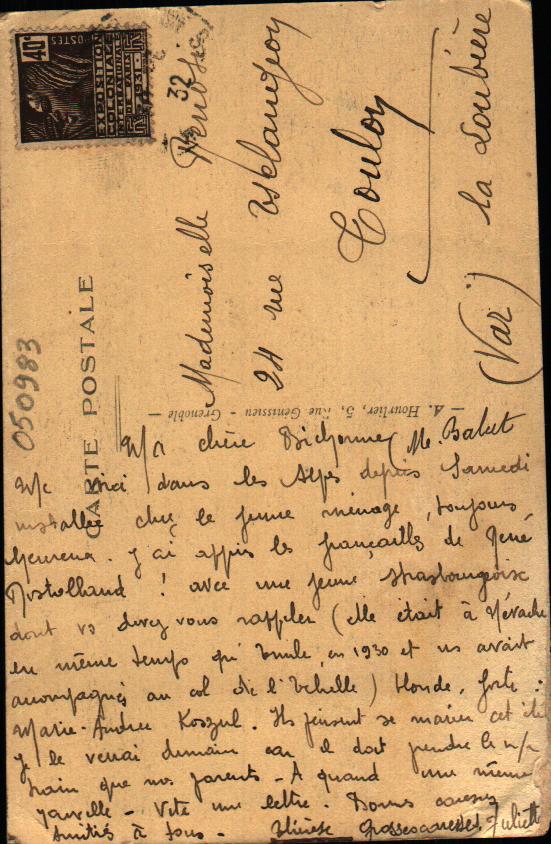 40c
POSTES
EXPOSITION
COLONIALE
INTERNATIONALE
PARIS
1931
32
CARTE POSTALE
050983
Mademoiselle
24 rue Esclangon
Toulon
La Loubière
(Var)
— A. Hourlier, 5, Rue Génissieu - Grenoble —
chère Bichonne (Me. Balut
dans les Alpes depuis Samedi
installée chez le jeune ménage, toujours
heureux. J'ai appris les fiançailles de René
! avec une jeune strasbourgeoise
dont vs devez vous rappeler (elle était à Névache
en même temps qu'Emile, en 1930 et ns avait
accompagnés au col de l'Echelle) blonde, forte :
Marie-Andrée Koszul. Ils pensent se marier cet été
je le verrai demain car il doit prendre le m/
train que nos parents - A quand une même
- Vite une lettre. Bonnes caresses
Amitiés à tous - Thérèse Grosses caresses, Juliette